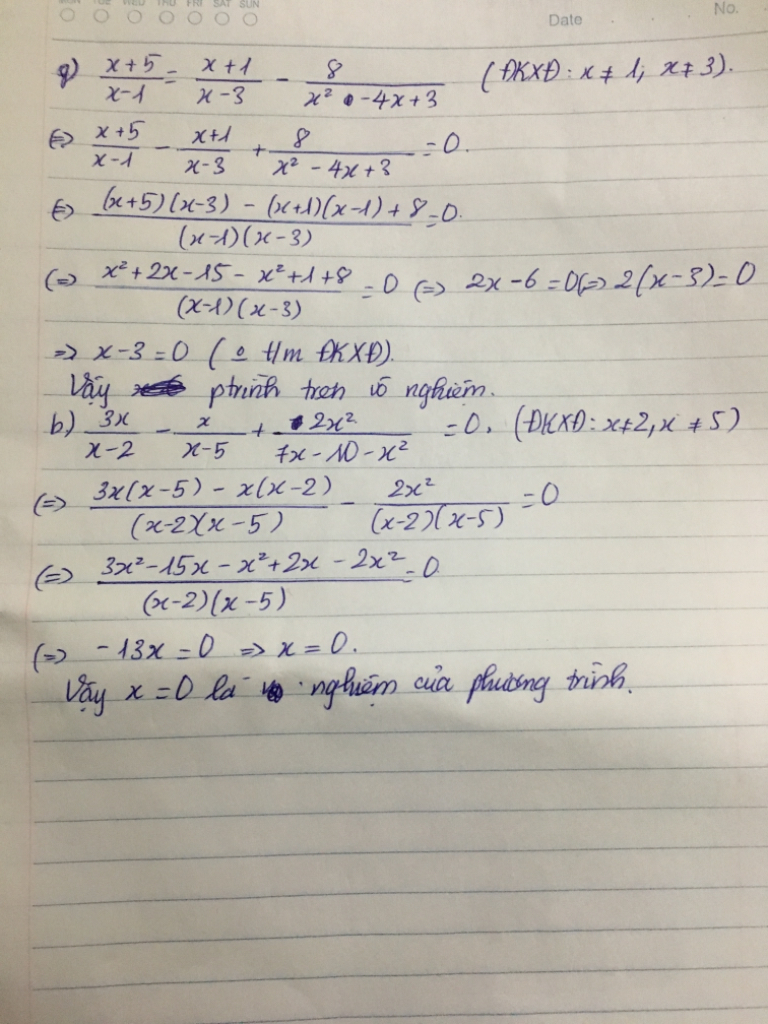 MON TUE WED THU FRI SAT SUN
Date No.
a) (x+5)/(x-1) = (x+1)/(x-3) - 8/(x² - 4x + 3) (ĐKXĐ: x ≠ 1; x ≠ 3).
(=) (x+5)/(x-1) - (x+1)/(x-3) + 8/(x² - 4x + 3) = 0.
(=) ((x+5)(x-3) - (x+1)(x-1) + 8)/((x-1)(x-3)) = 0.
(=) (x² + 2x - 15 - x² + 1 + 8)/((x-1)(x-3)) = 0 (=) 2x - 6 = 0 (=) 2(x-3) = 0
=> x - 3 = 0 (o t/m ĐKXĐ).
Vậy ptrình tren vô nghiệm.
b) 3x/(x-2) - x/(x-5) + 2x²/(7x - 10 - x²) = 0. (ĐKXĐ: x ≠ 2, x ≠ 5)
(=) (3x(x-5) - x(x-2))/((x-2)(x-5)) - 2x²/((x-2)(x-5)) = 0
(=) (3x² - 15x - x² + 2x - 2x²)/((x-2)(x-5)) = 0
(=) -13x = 0 => x = 0.
Vậy x = 0 là nghiệm của phương trình.